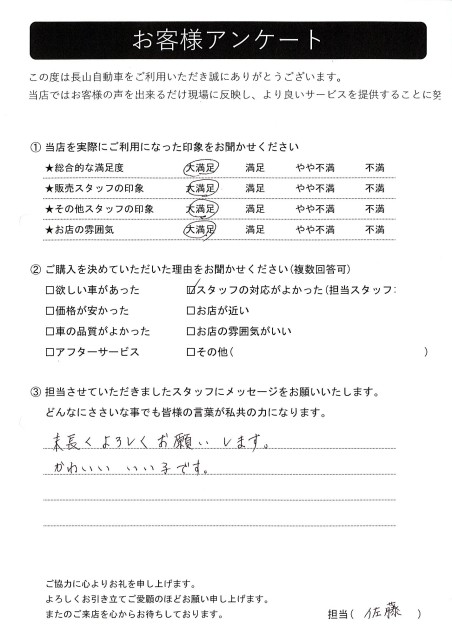 お客様アンケート
この度は長山自動車をご利用いただき誠にありがとうございます。
当店ではお客様の声を出来るだけ現場に反映し、より良いサービスを提供することに努
① 当店を実際にご利用になった印象をお聞かせください
★総合的な満足度 大満足 満足 やや不満 不満
★販売スタッフの印象 大満足 満足 やや不満 不満
★その他スタッフの印象 大満足 満足 やや不満 不満
★お店の雰囲気 大満足 満足 やや不満 不満
② ご購入を決めていただいた理由をお聞かせください(複数回答可)
□欲しい車があった ☑スタッフの対応がよかった(担当スタッフ:
□価格が安かった □お店が近い
□車の品質がよかった □お店の雰囲気がいい
□アフターサービス □その他( )
③ 担当させていただきましたスタッフにメッセージをお願いいたします。
どんなにささいな事でも皆様の言葉が私共の力になります。
末長くよろしくお願いします。
かわいい いい子です。
ご協力に心よりお礼を申し上げます。
よろしくお引き立てご愛顧のほどお願い申し上げます。
またのご来店を心からお待ちしております。 担当( 佐藤 )